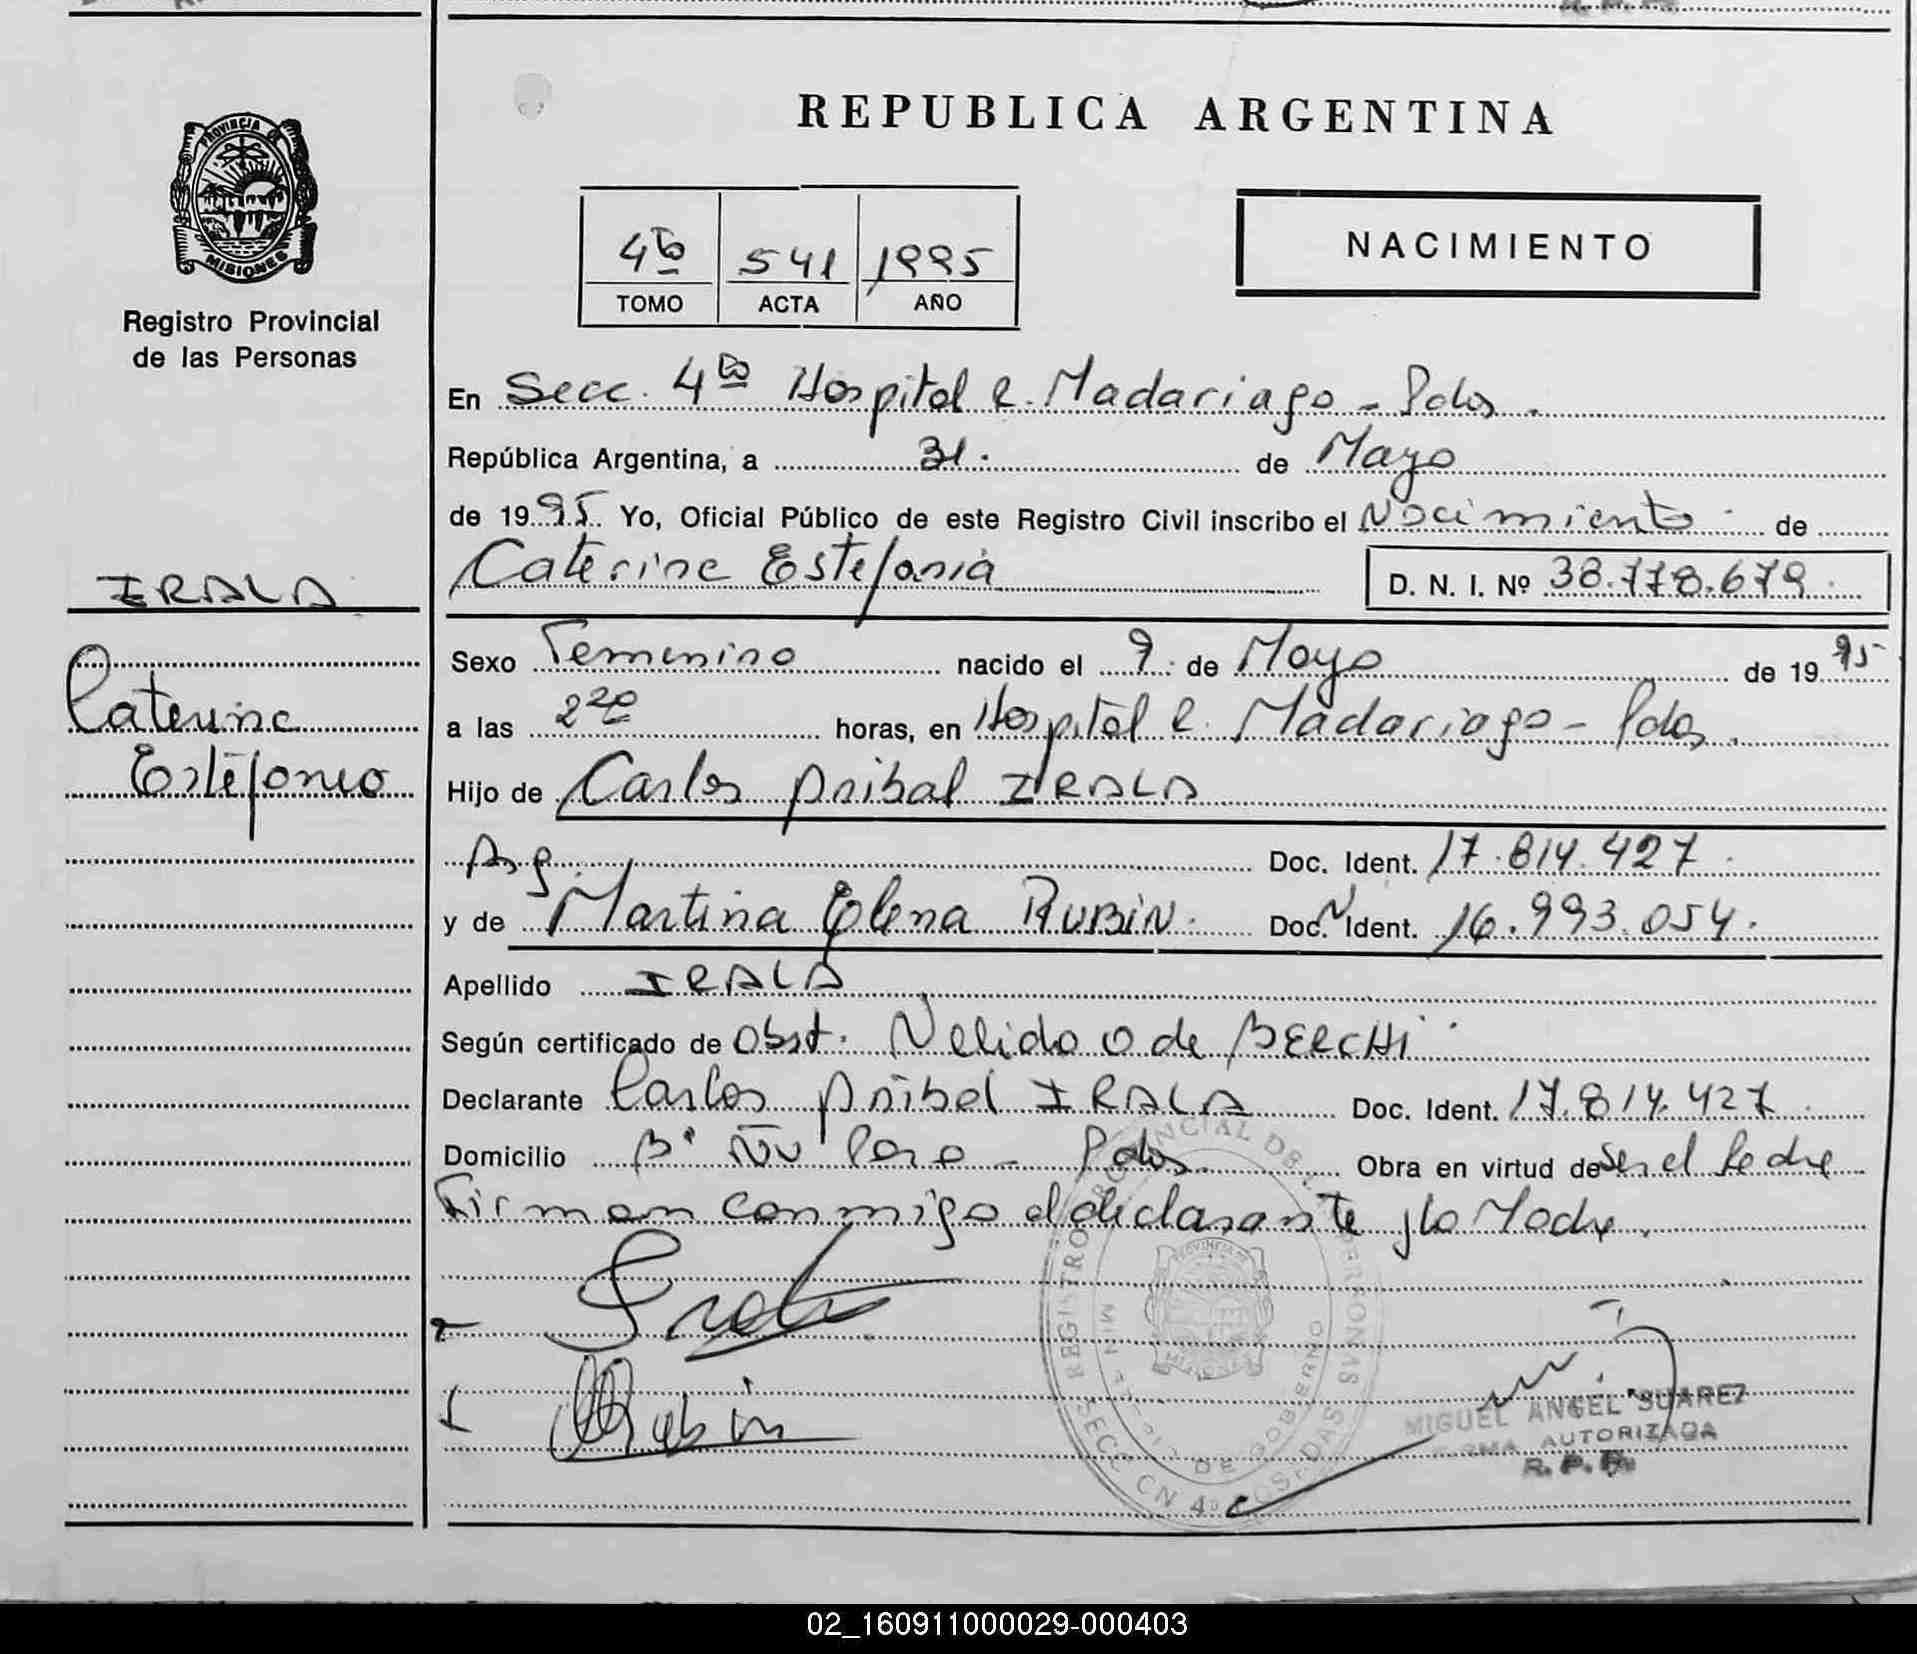 REPUBLICA ARGENTINA
PROVINCIA DE
MISIONES
Registro Provincial
de las Personas
4to 541 1995
TOMO ACTA AÑO
NACIMIENTO
En Secc. 4ta Hospital R. Madariaga - Pdas.
República Argentina, a 31. de Mayo
de 1995 Yo, Oficial Público de este Registro Civil inscribo el Nacimiento de
Caterine Estefania D. N. I. Nº 38.778.679
IRALA
Caterine
Estefania
Sexo Femenino nacido el 9 de Mayo de 1995
a las 2 horas, en Hospital R. Madariaga - Pdas.
Hijo de Carlos Anibal IRALA
Arg. Doc. Ident. 17.814.427
y de Martina Elena RUBIN. Doc. Ident. 16.993.054.
Apellido IRALA
Según certificado de Obst. Nelida O de BERCHI
Declarante Carlos Anibal IRALA Doc. Ident. 17.814.427
Domicilio Bº Ñu Pora - Pdas. Obra en virtud de Ser el Padre
Firman conmigo el declarante y la Madre.
REGISTRO PROVINCIAL DE LAS PERSONAS
MINISTERIO DE GOBIERNO
PROVINCIA DE
MISIONES
SECCCN 4º POSADAS
Rubin
MIGUEL ANGEL SUAREZ
FIRMA AUTORIZADA
R. P. P.
02_160911000029-000403